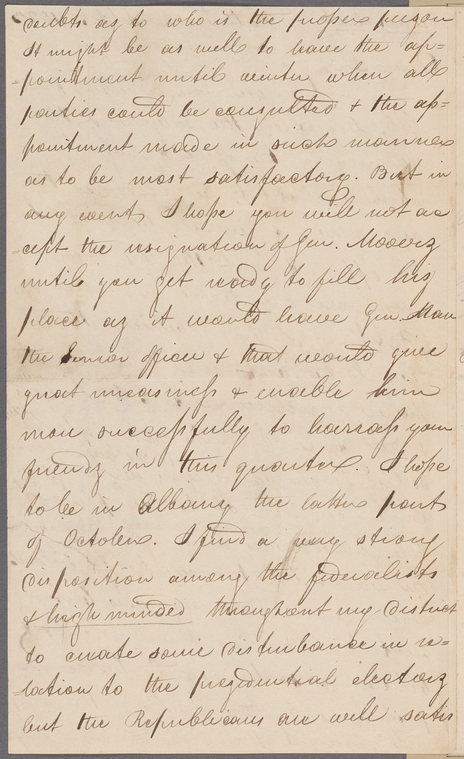 doubts as to who is the proper person
it might be as well to leave the ap=
pointment until winter when all
parties could be consulted & the ap=
pointment made in such manner
as to be most satisfactory. But in
any event, I hope you will not ac
cept the resignation of Gen. Mooers
until you get ready to fill his
place as it would leave Gen.
the Senior officer & that would give
great uneasiness & enable him
more successfully to harrass your
friends in this quarter. I hope
to be in Albany the latter part
of October. I find a very strong
disposition among the federalists
& high minded throughout my district
to create some disturbance in re=
lation to the presidential electors
but the Republicans are well satis